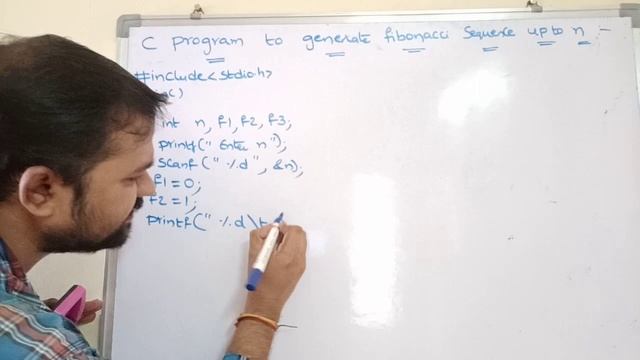 C program to generate fibonacci sequence up to n -
#include<stdio.h>
)
int n, f1, f2, f3;
printf(" Enter n");
scanf(" %d", &n);
f1 = 0;
f2 = 1;
printf(" %d\t